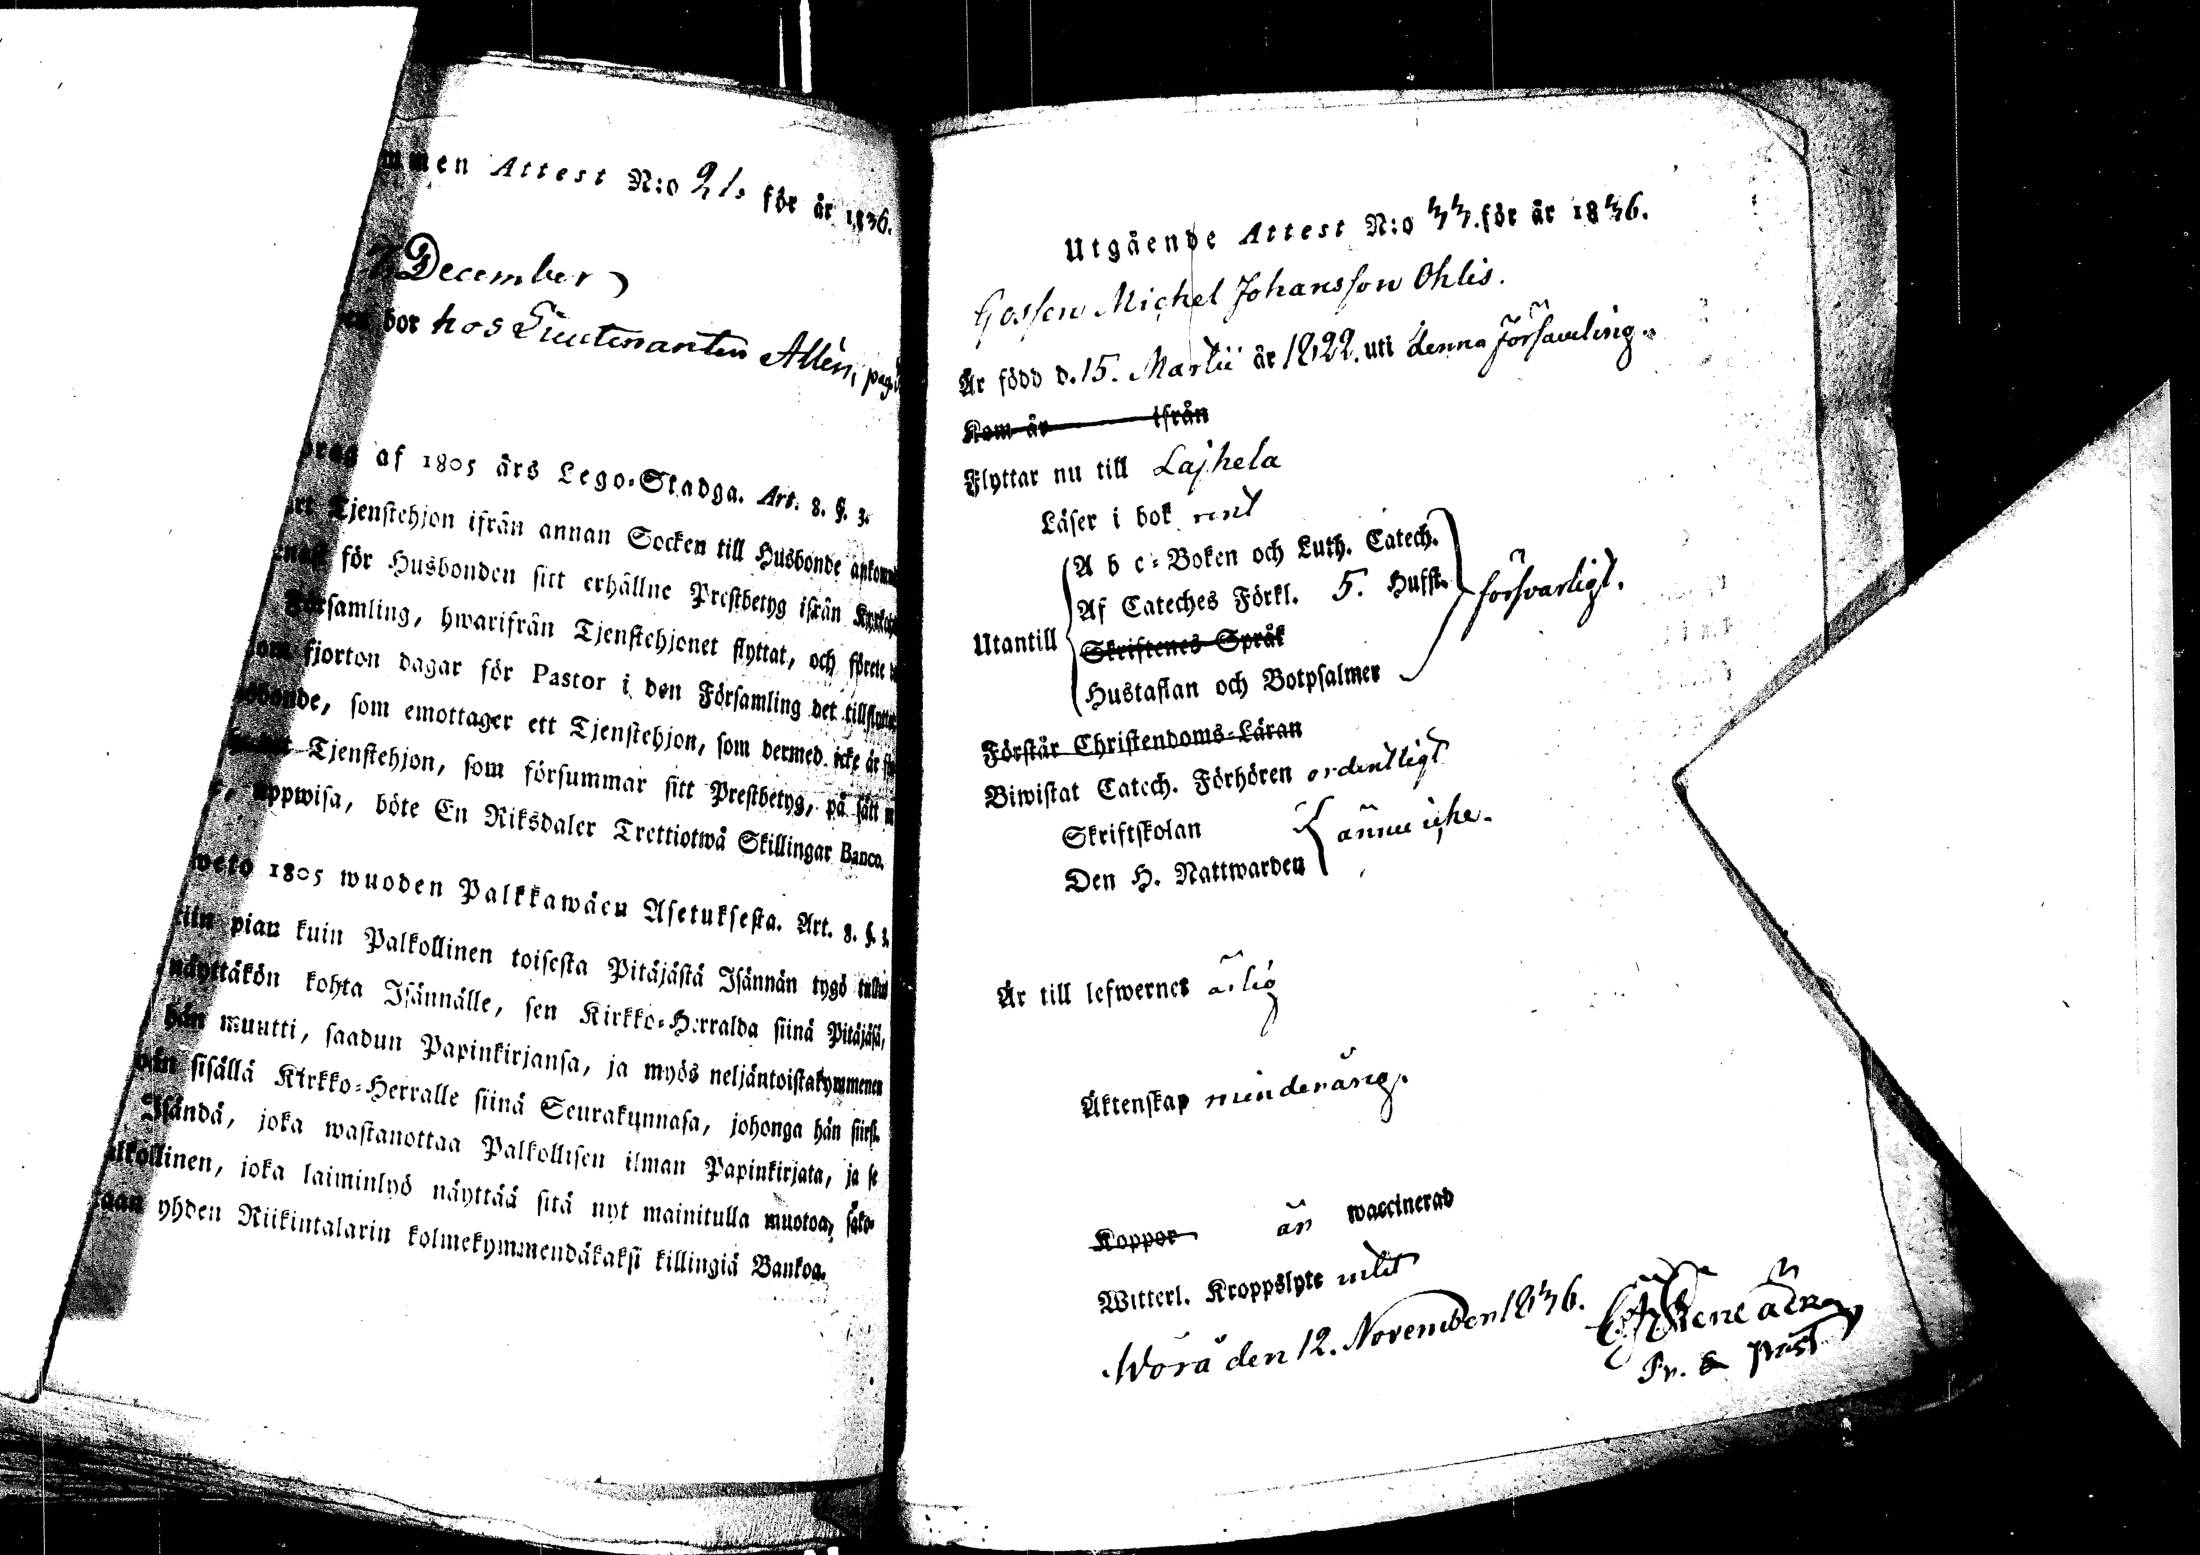 mmen Attest N:o 21. för år 1836.
December
bor hos Lieutenanten Allén, pag.
af 1805 års Lego-Stadga. Art. 8. §. 3.
Tjenstehjon ifrån annan Socken till Husbonde
för Husbonden sitt erhållne Prestbetyg ifrån
Församling, hwarifrån Tjenstehjonet flyttat, och förete
om fjorton dagar för Pastor i den Församling det
som emottager ett Tjenstehjon, som dermed icke är
Tjenstehjon, som försummar sitt Prestbetyg, på sätt
uppwisa, böte En Riksdaler Trettiotwå Skillingar Banco.
1805 wuoden Palkkawäen Asetuksesta. Art. 8. §. 3.
pian kuin Palkollinen toisesta Pitäjästä Isännän tygö tullut
näyttäkön kohta Isännälle, sen Kirkko-Herralda siinä Pitäjäsä,
hän muutti, saadun Papinkirjansa, ja myös neljäntoistakymmenen
sisällä Kirkko-Herralle siinä Seurakunnasa, johonga hän siirsi.
Isändä, joka wastanottaa Palkollisen ilman Papinkirjata, ja se
lkollinen, joka laiminlyö näyttää sitä nyt mainitulla muotoa, sako-
aan yhden Riikintalarin kolmekymmendäkaksi killingiä Bankoa.
Utgående Attest N:o 33. för år 1836.
Gossen Michel Johansson Ohlis.
Är född d. 15. Martii år 1822. uti denna församling.
Kom år ifrån
Flyttar nu till Lajhela
Läser i bok rent
A b c-Boken och Luth. Catech.
Af Cateches Förkl. 5. Hufst.
försvarligt.
Utantill
Skriftenes Språk
Hustaflan och Botpsalmer
Förstår Christendoms-Läran
Biwistat Catech. Förhören ordentligt
Skriftskolan
ännu icke.
Den H. Nattwarden
Är till lefwernet ärlig
Äktenskap minderårig.
Koppor är waccinerad
Witterl. Kroppslyte intet
Wörå den 12. November 1836.
Pr. & Past